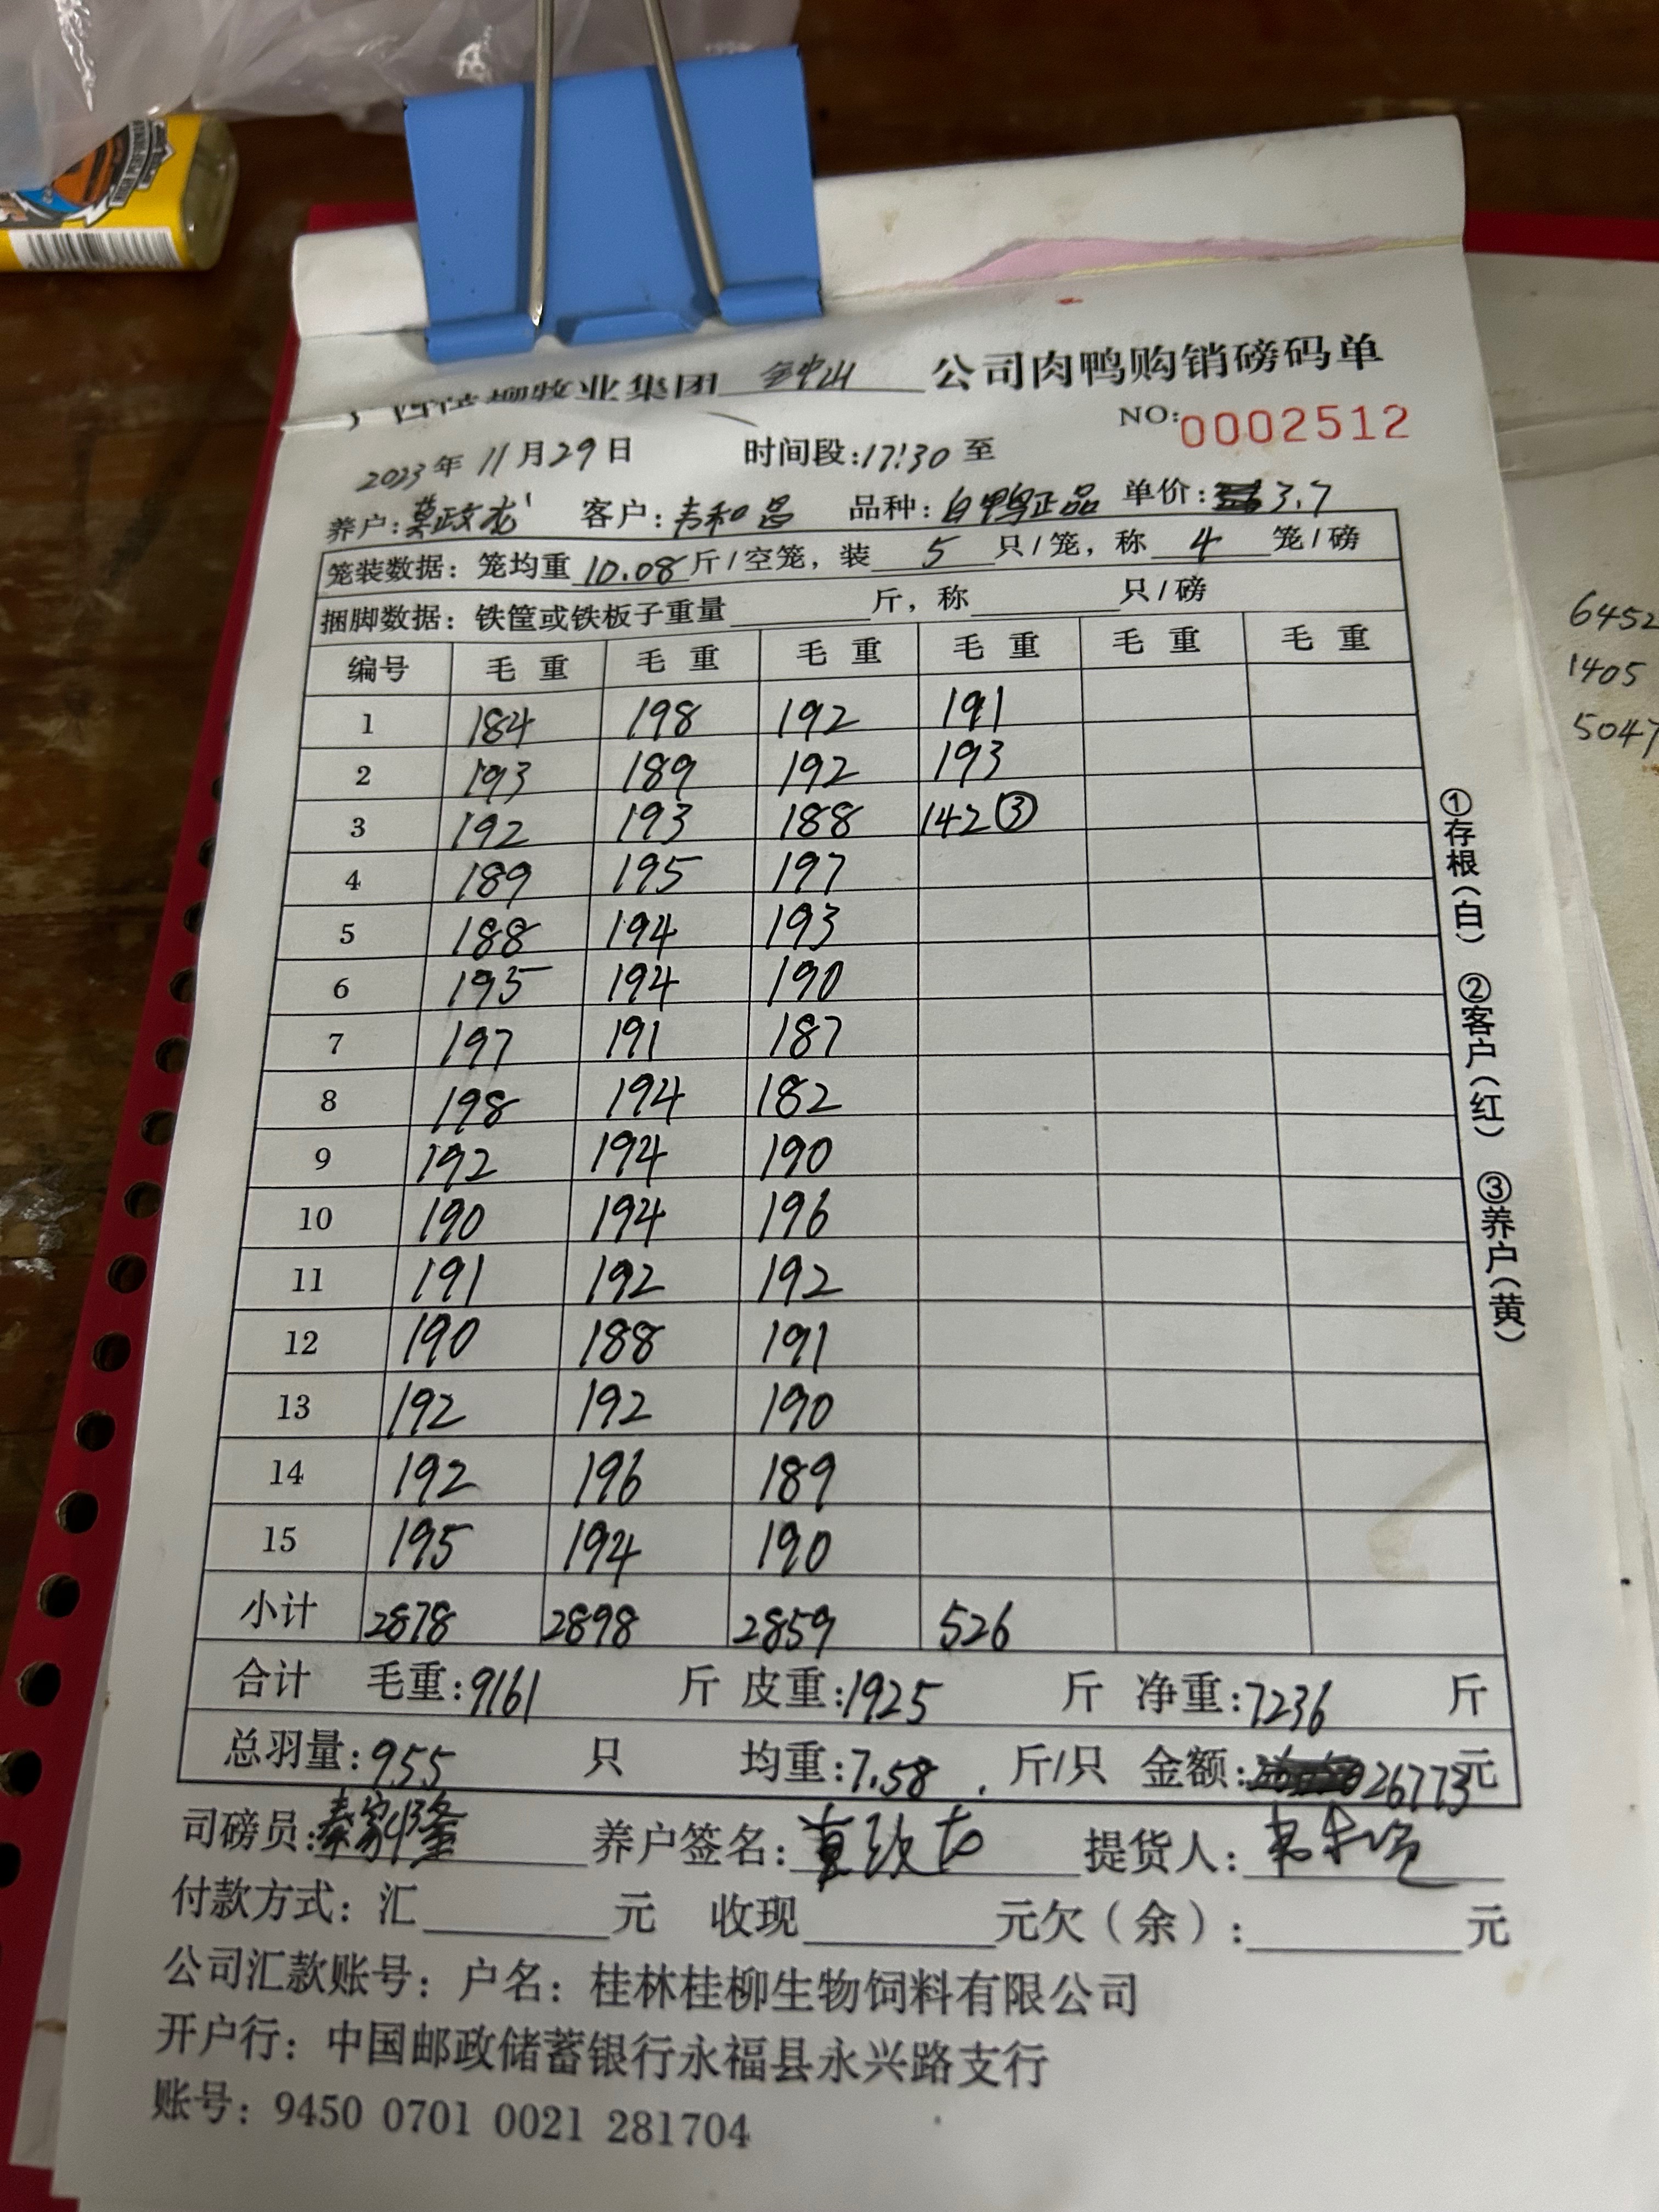 牧业集团 钟山 公司肉鸭购销磅码单
NO:0002512
2023年11月29日 时间段:17:30至
养户:莫政龙 客户:韦和昌 品种:白鸭正品 单价:3.7
笼装数据:笼均重10.08斤/空笼,装5只/笼,称4笼/磅
捆脚数据:铁筐或铁板子重量 斤,称 只/磅
编号 毛重 毛重 毛重 毛重 毛重 毛重
1 184 198 192 191
2 193 189 192 193
3 192 193 188 142③
4 189 195 197
5 188 194 193
6 195 194 190
7 197 191 187
8 198 194 182
9 192 194 190
10 190 194 196
11 191 192 192
12 190 188 191
13 192 192 190
14 192 196 189
15 195 194 190
小计 2878 2898 2859 526
合计 毛重:9161 斤 皮重:1925 斤 净重:7236 斤
总羽量:955 只 均重:7.58 斤/只 金额:26773元
司磅员:秦家隆 养户签名:莫政龙 提货人:
付款方式:汇 元 收现 元欠(余): 元
公司汇款账号:户名:桂林桂柳生物饲料有限公司
开户行:中国邮政储蓄银行永福县永兴路支行
账号:9450 0701 0021 281704
①存根(白) ②客户(红) ③养户(黄)
6452
1405
5047